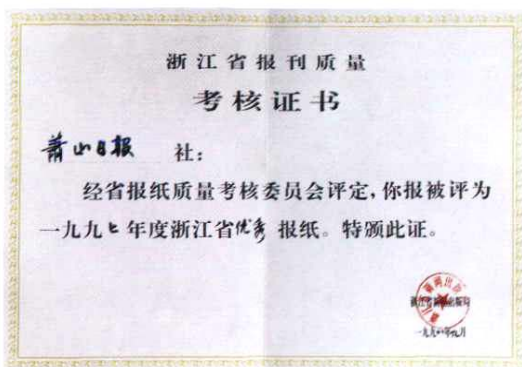 浙江省报刊质量
考核证书
萧山日报 社：
经省报纸质量考核委员会评定，你报被评为
一九九七年度浙江省优秀报纸。特颁此证。
浙江省新闻出版局